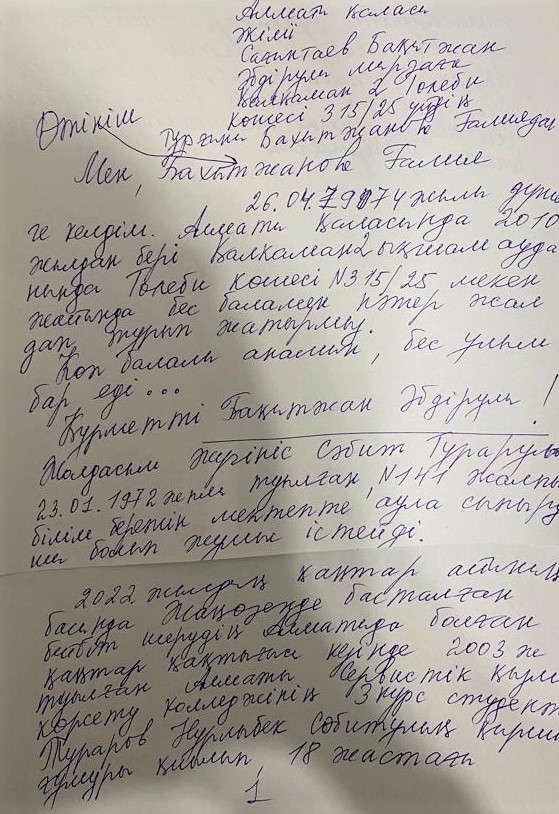 Алматы қаласы
Әкімі
Сағынтаев Бақытжан
Әбдірұлы мырзаға
Қалқаман 2 Төлеби
көшесі 315/25 үйдің
тұрғыны Бахытжанова Ғалиядан
Өтініш
Мен, Бахытжанова Ғалия
26.04.1974 жылы дүние
ге келдім. Алматы қаласында 2010
жылдан бері Қалқаман 2 ықшам ауда
нында Төлеби көшесі N315/25 мекен
жайында бес баламен пәтер жал
дап, тұрып жатырмын.
Көп балалы анамын, бес ұлым
бар еді...
Құрметті Бақытжан Әбдірұлы!
Жолдасым Жәгініс Сәбит Тұрарұлы
23.01.1972 жылы туылған, N141 жалпы
білім беретін мектепте аула сыпыру
шы болып жұмыс істейді.
2022 жылдың қаңтар айының
басында Жаңаөзенде басталған
бейбіт шерудің Алматыда болған
қаңтар қақтығысы кезінде 2003 ж
туылған Алматы Сервистік қызмет
көрсету колледжінің 3 курс студент
Тұраров Нұрлыбек Сәбитұлың қыршын
ғұмыры қиылып, 18 жастағы
1